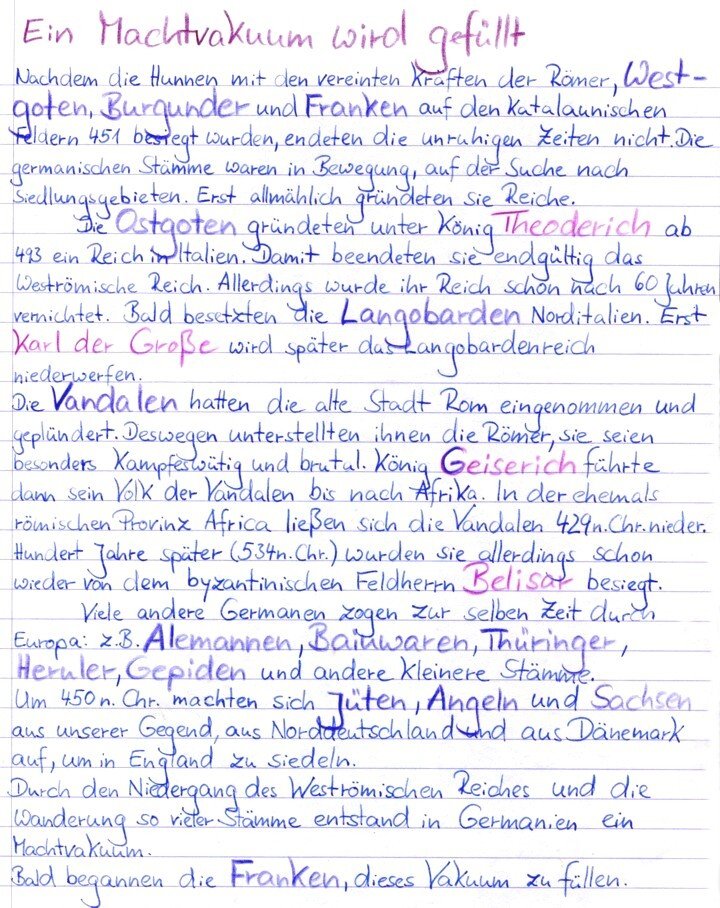 Ein Machtvakuum wird gefüllt
Nachdem die Hunnen mit den vereinten Kräften der Römer, West-
goten, Burgunder und Franken auf den Katalaunischen
Feldern 451 besiegt wurden, endeten die unruhigen Zeiten nicht. Die
germanischen Stämme waren in Bewegung, auf der Suche nach
Siedlungsgebieten. Erst allmählich gründeten sie Reiche.
Die Ostgoten gründeten unter König Theoderich ab
493 ein Reich in Italien. Damit beendeten sie endgültig das
Weströmische Reich. Allerdings wurde ihr Reich schon nach 60 Jahren
vernichtet. Bald besetzten die Langobarden Norditalien. Erst
Karl der Große wird später das Langobardenreich
niederwerfen.
Die Vandalen hatten die alte Stadt Rom eingenommen und
geplündert. Deswegen unterstellten ihnen die Römer, sie seien
besonders Kampfeswütig und brutal. König Geiserich führte
dann sein Volk der Vandalen bis nach Afrika. In der ehemals
römischen Provinz Africa ließen sich die Vandalen 429 n. Chr. nieder.
Hundert Jahre später (534 n. Chr.) wurden sie allerdings schon
wieder von dem byzantinischen Feldherrn Belisar besiegt.
Viele andere Germanen zogen zur selben Zeit durch
Europa: z.B. Alemannen, Baiuwaren, Thüringer,
Heruler, Gepiden und andere kleinere Stämme.
Um 450 n. Chr. machten sich Jüten, Angeln und Sachsen
aus unserer Gegend, aus Norddeutschland und aus Dänemark
auf, um in England zu siedeln.
Durch den Niedergang des Weströmischen Reiches und die
Wanderung so vieler Stämme entstand in Germanien ein
Machtvakuum.
Bald begannen die Franken, dieses Vakuum zu füllen.